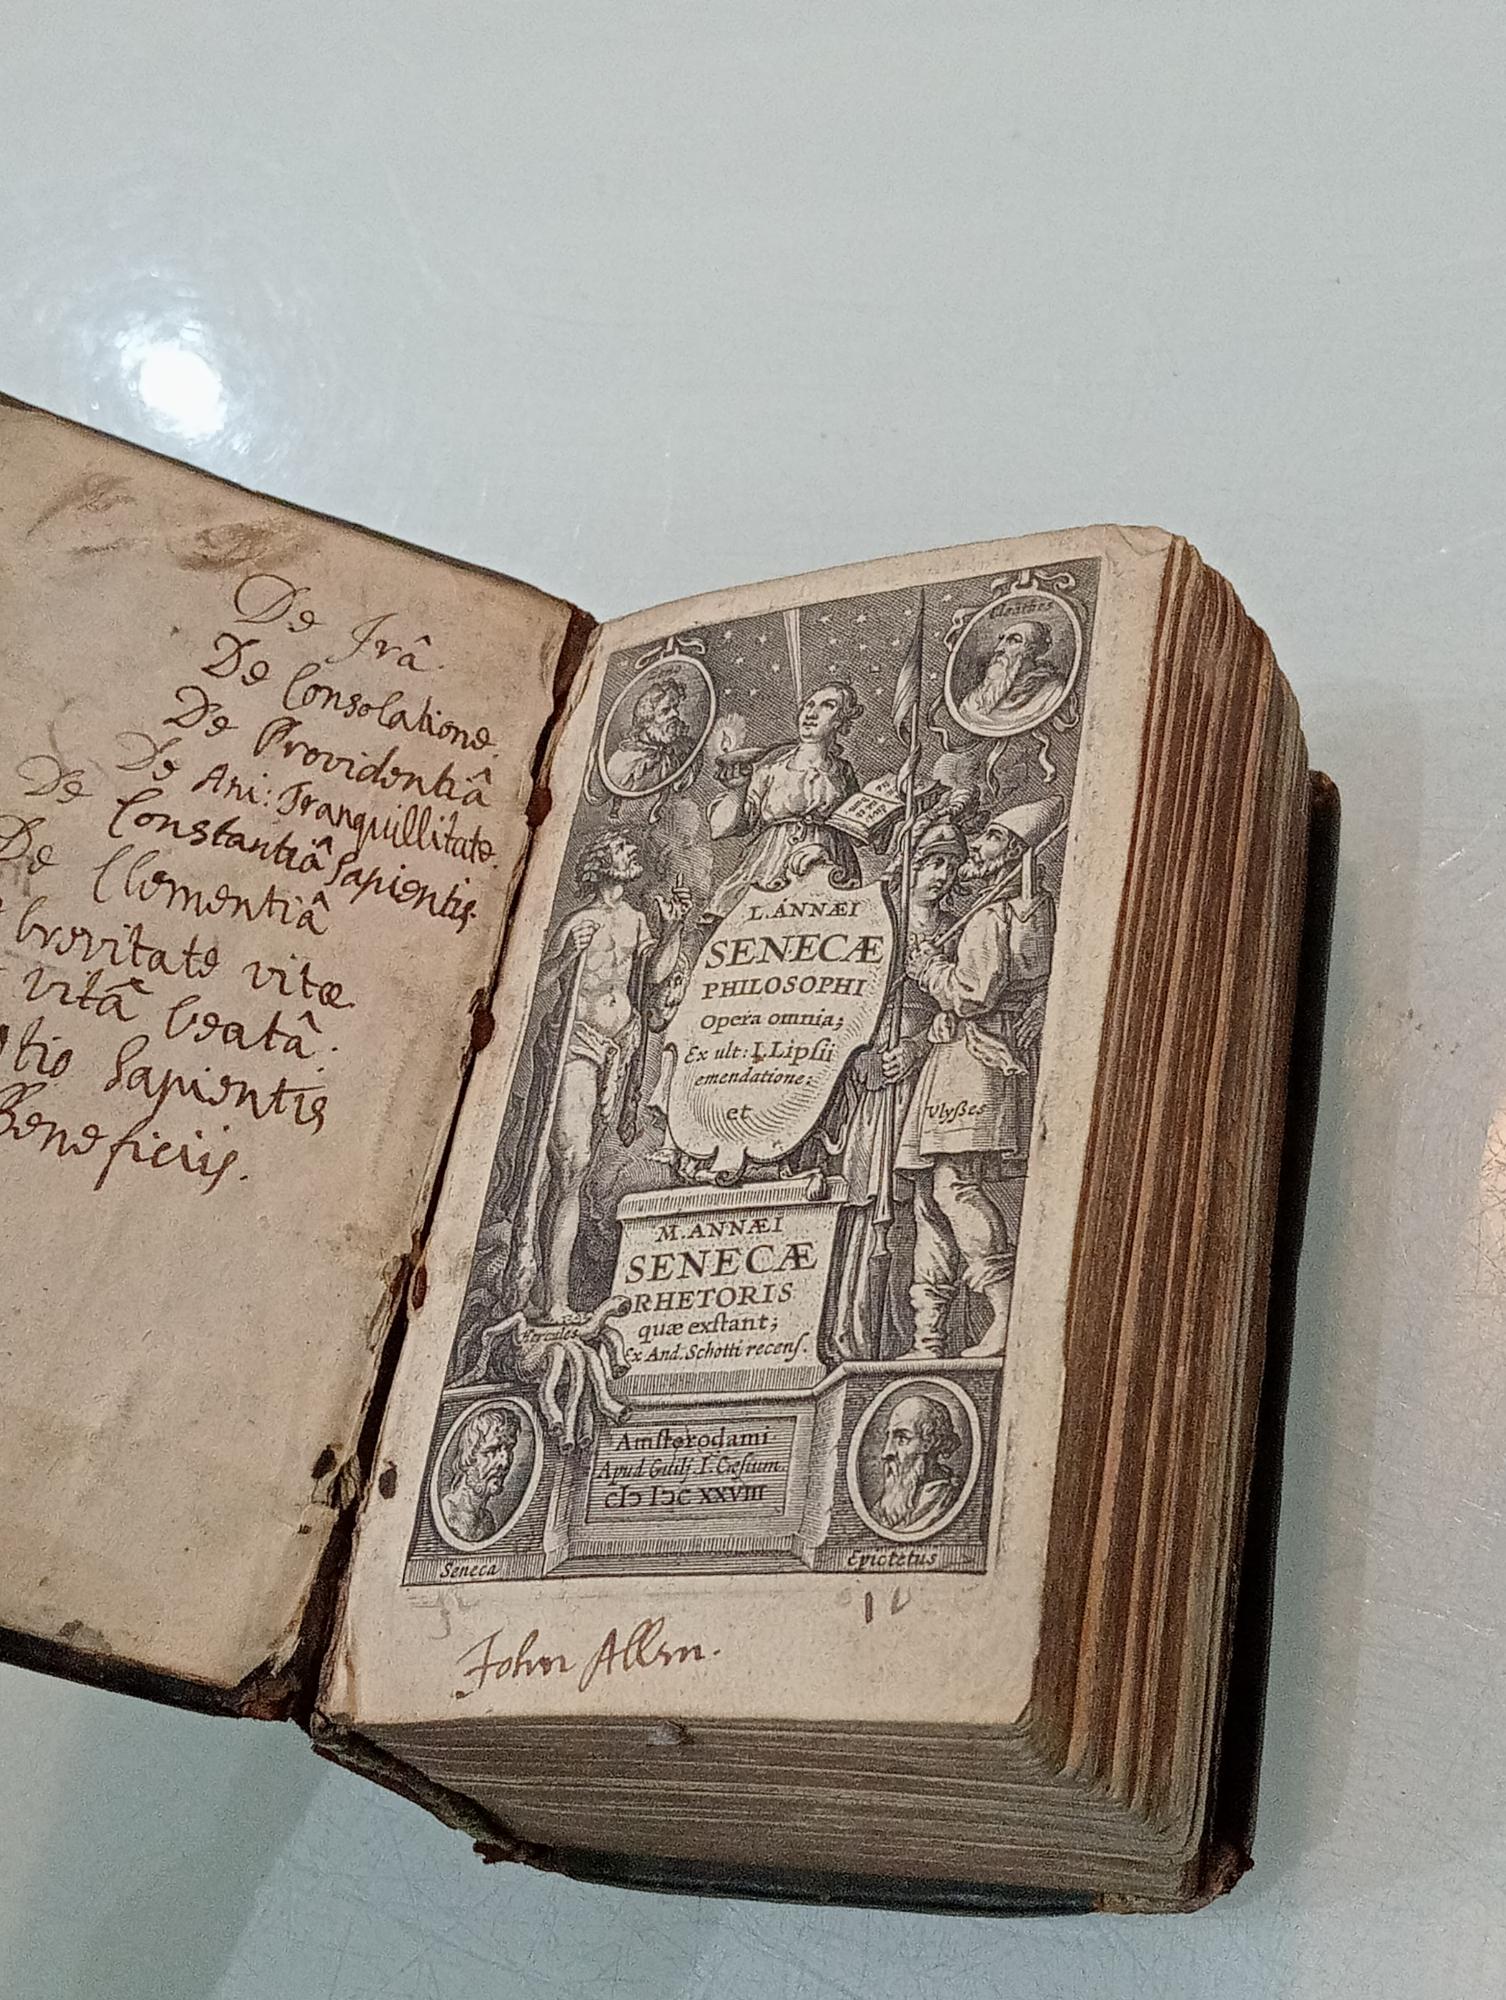 De Irâ.
De Consolatione.
De Providentiâ
De Ani: Tranquillitate.
De Constantiâ Sapientis.
De Clementiâ
brevitate vitæ.
vitâ beatâ.
Sapientis
Beneficiis.
Cleãthes
L. ANNÆI
SENECÆ
PHILOSOPHI
Opera omnia;
Ex ult: I. Lipsii
emendatione:
et
Ulyßes
M. ANNÆI
SENECÆ
RHETORIS
quæ exstant;
Ex And. Schotti recens.
Hercules
Amsterodami
Apud Guilj. I. Cæsium
cIɔ Iɔc XXVIII
Seneca
Epictetus
John Allen.